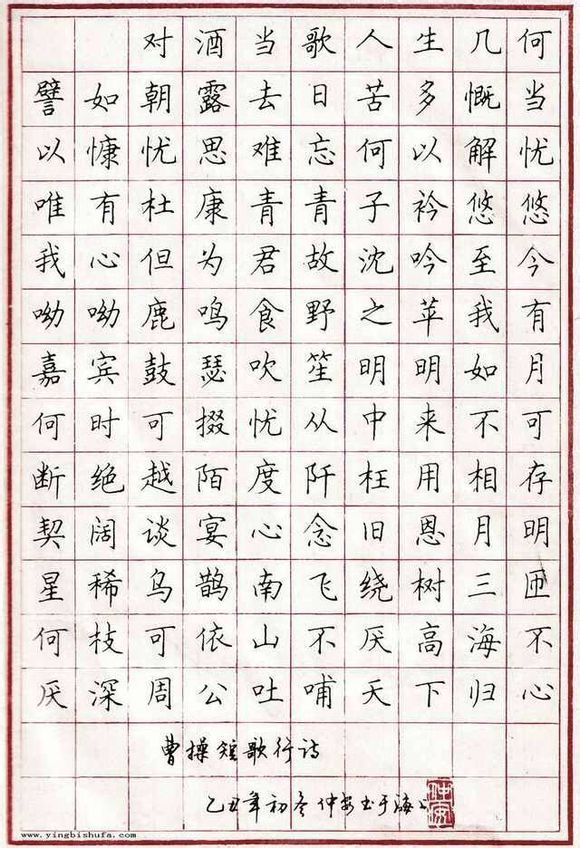 对酒当歌人生几何
譬如朝露去日苦多慨当
以慷忧思难忘何以解忧
唯有杜康青青子衿悠悠
我心但为君故沈吟至今
呦呦鹿鸣食野之苹我有
嘉宾鼓瑟吹笙明明如月
何时可掇忧从中来不可
断绝越陌度阡枉用相存
契阔谈宴心念旧恩月明
星稀乌鹊南飞绕树三匝
何枝可依山不厌高海不
厌深周公吐哺天下归心
曹操短歌行诗
乙丑年初冬仲安书于海上
仲安
www.yingbishufa.com